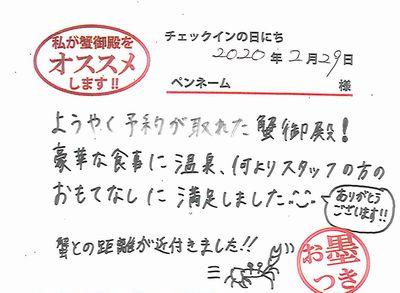 私が蟹御殿を
オススメ
します!!
チェックインの日にち
2020年2月29日
ペンネーム 様
ようやく予約が取れた蟹御殿!
豪華な食事に温泉、何よりスタッフの方の
おもてなしに満足しました
ありがとう
ございます!!
蟹との距離が近付きました!!
お墨
つき